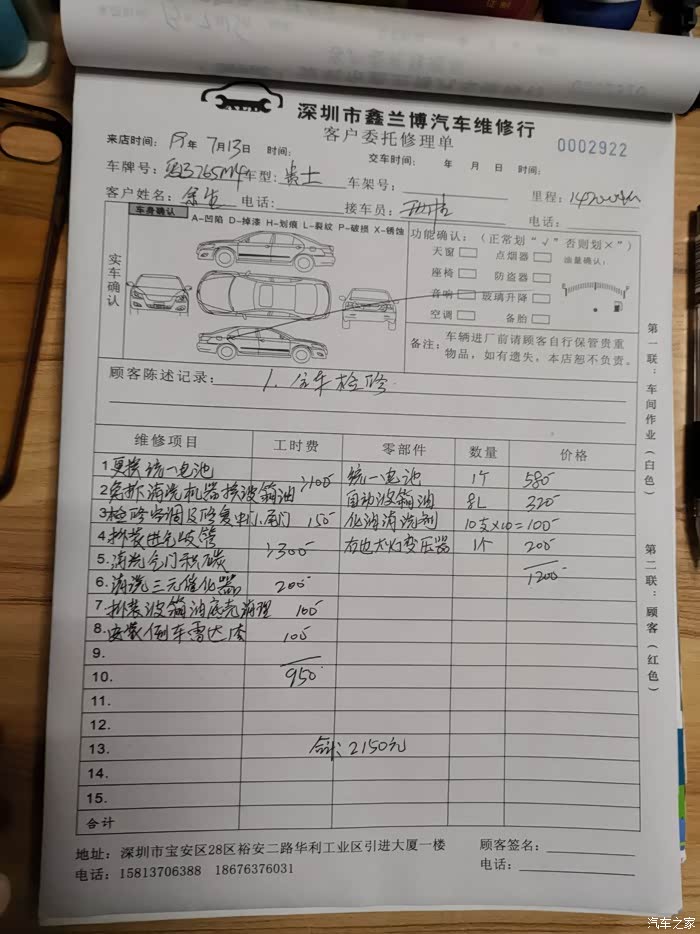 深圳市鑫兰博汽车维修行
客户委托修理单
0002922
来店时间: 19年 7月13日 时间: 交车时间: 年 月 日 时间:
车牌号: 粤B765M4 车型: 贵士 车架号: 里程: 142000km
客户姓名: 余生 电话: 接车员: 电话:
车身确认 A-凹陷 D-掉漆 H-划痕 L-裂纹 P-破损 X-锈蚀
实车确认
功能确认: (正常划"√"否则划×")
天窗 点烟器 油量确认:
座椅 防盗器
音响 玻璃升降
空调 备胎
备注: 车辆进厂前请顾客自行保管贵重
物品,如有遗失,本店恕不负责。
顾客陈述记录: 1. 全车检修.
维修项目 工时费 零部件 数量 价格
1 更换统一电池 统一电池 1个 580
2 免拆清洗机器换波箱油 >100 自动波箱油 8L 320
3 检修空调及修复中门、尾门 150 化油清洗剂 10支×10=100
4 拆装进气歧管 右边大灯变压器 1个 200
5 清洗气门积碳 >300 1200
6. 清洗三元催化器 200
7 拆装波箱油底壳清理 100
8. 安装倒车雷达 100
9.
10. 950
11.
12.
13. 合计: 2150元
14.
15.
合计
第一联:车间作业(白色)
第二联:顾客(红色)
地址: 深圳市宝安区28区裕安二路华利工业区引进大厦一楼 顾客签名:
电话: 15813706388 18676376031 电话:
汽车之家